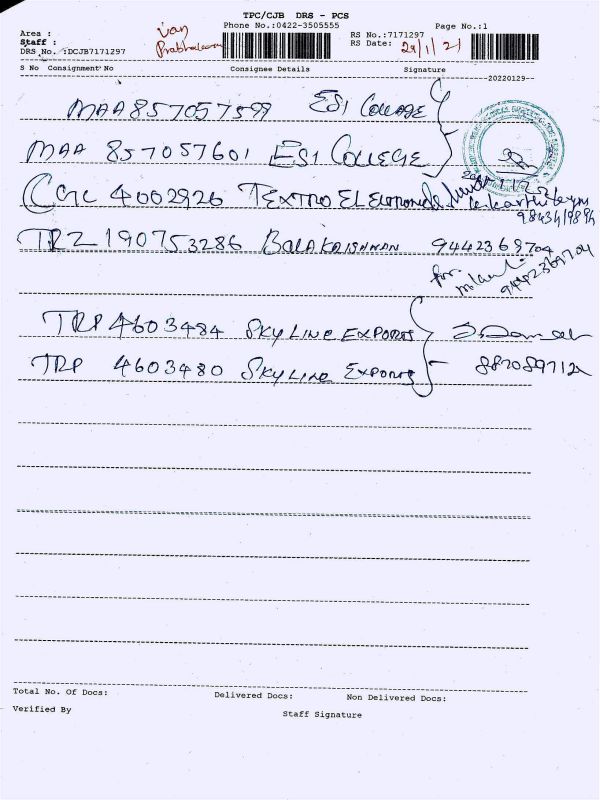 TPC/CJB DRS - PCS
Area : Phone No.:0422-3505555 Page No.:1
Staff : Van Prabhakaran RS No.:7171297
DRS No. :DCJB7171297 RS Date: 29/1/21
S No Consignment No Consignee Details Signature
20220129
MAA 857057599 ESI COLLEGE
MAA 857057601 ESI COLLEGE
CGL 4002926 TEXTRO
TRZ 190753286 BALAKRISHNAN 9442369704
for.
9442369704
TRP 4603484 SKYLINE EXPORTS
TRP 4603480 SKYLINE EXPORTS
Total No. Of Docs: Delivered Docs: Non Delivered Docs:
Verified By Staff Signature